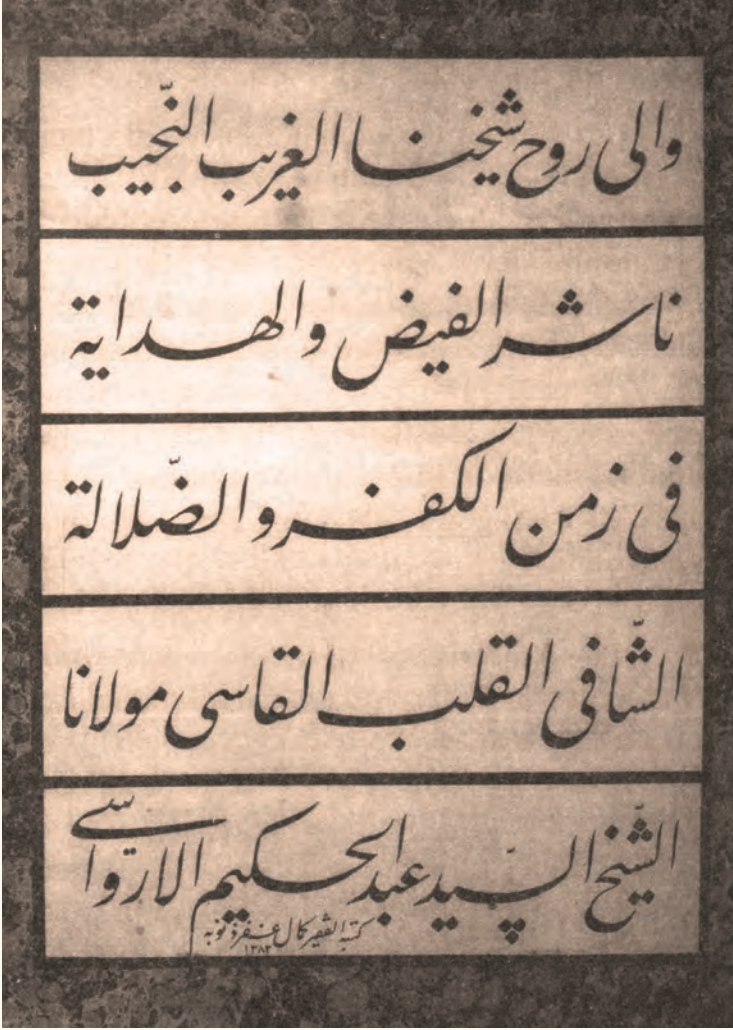 والى روح شيخنا الغريب النّجيب
ناشر الفيض والهداية
فى زمن الكفر والضّلالة
الشّافى القلب القاسى مولانا
الشّيخ السّيد عبد الحكيم الارواسى
كتبه الفقير كمال غفر ذنوبه
١٣٨٣